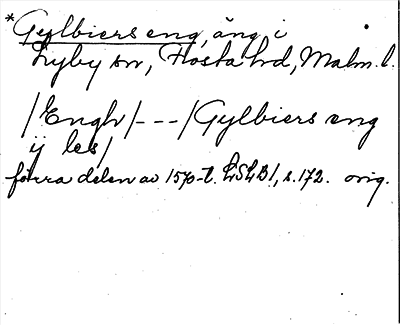 *Gylbiers eng, äng i
Lyby sn, Frosta hd, Malm. l.
/Engh/---/Gylbiers eng
ÿ les/
förra delen av 1570-t. LSLB1, s.172. orig.